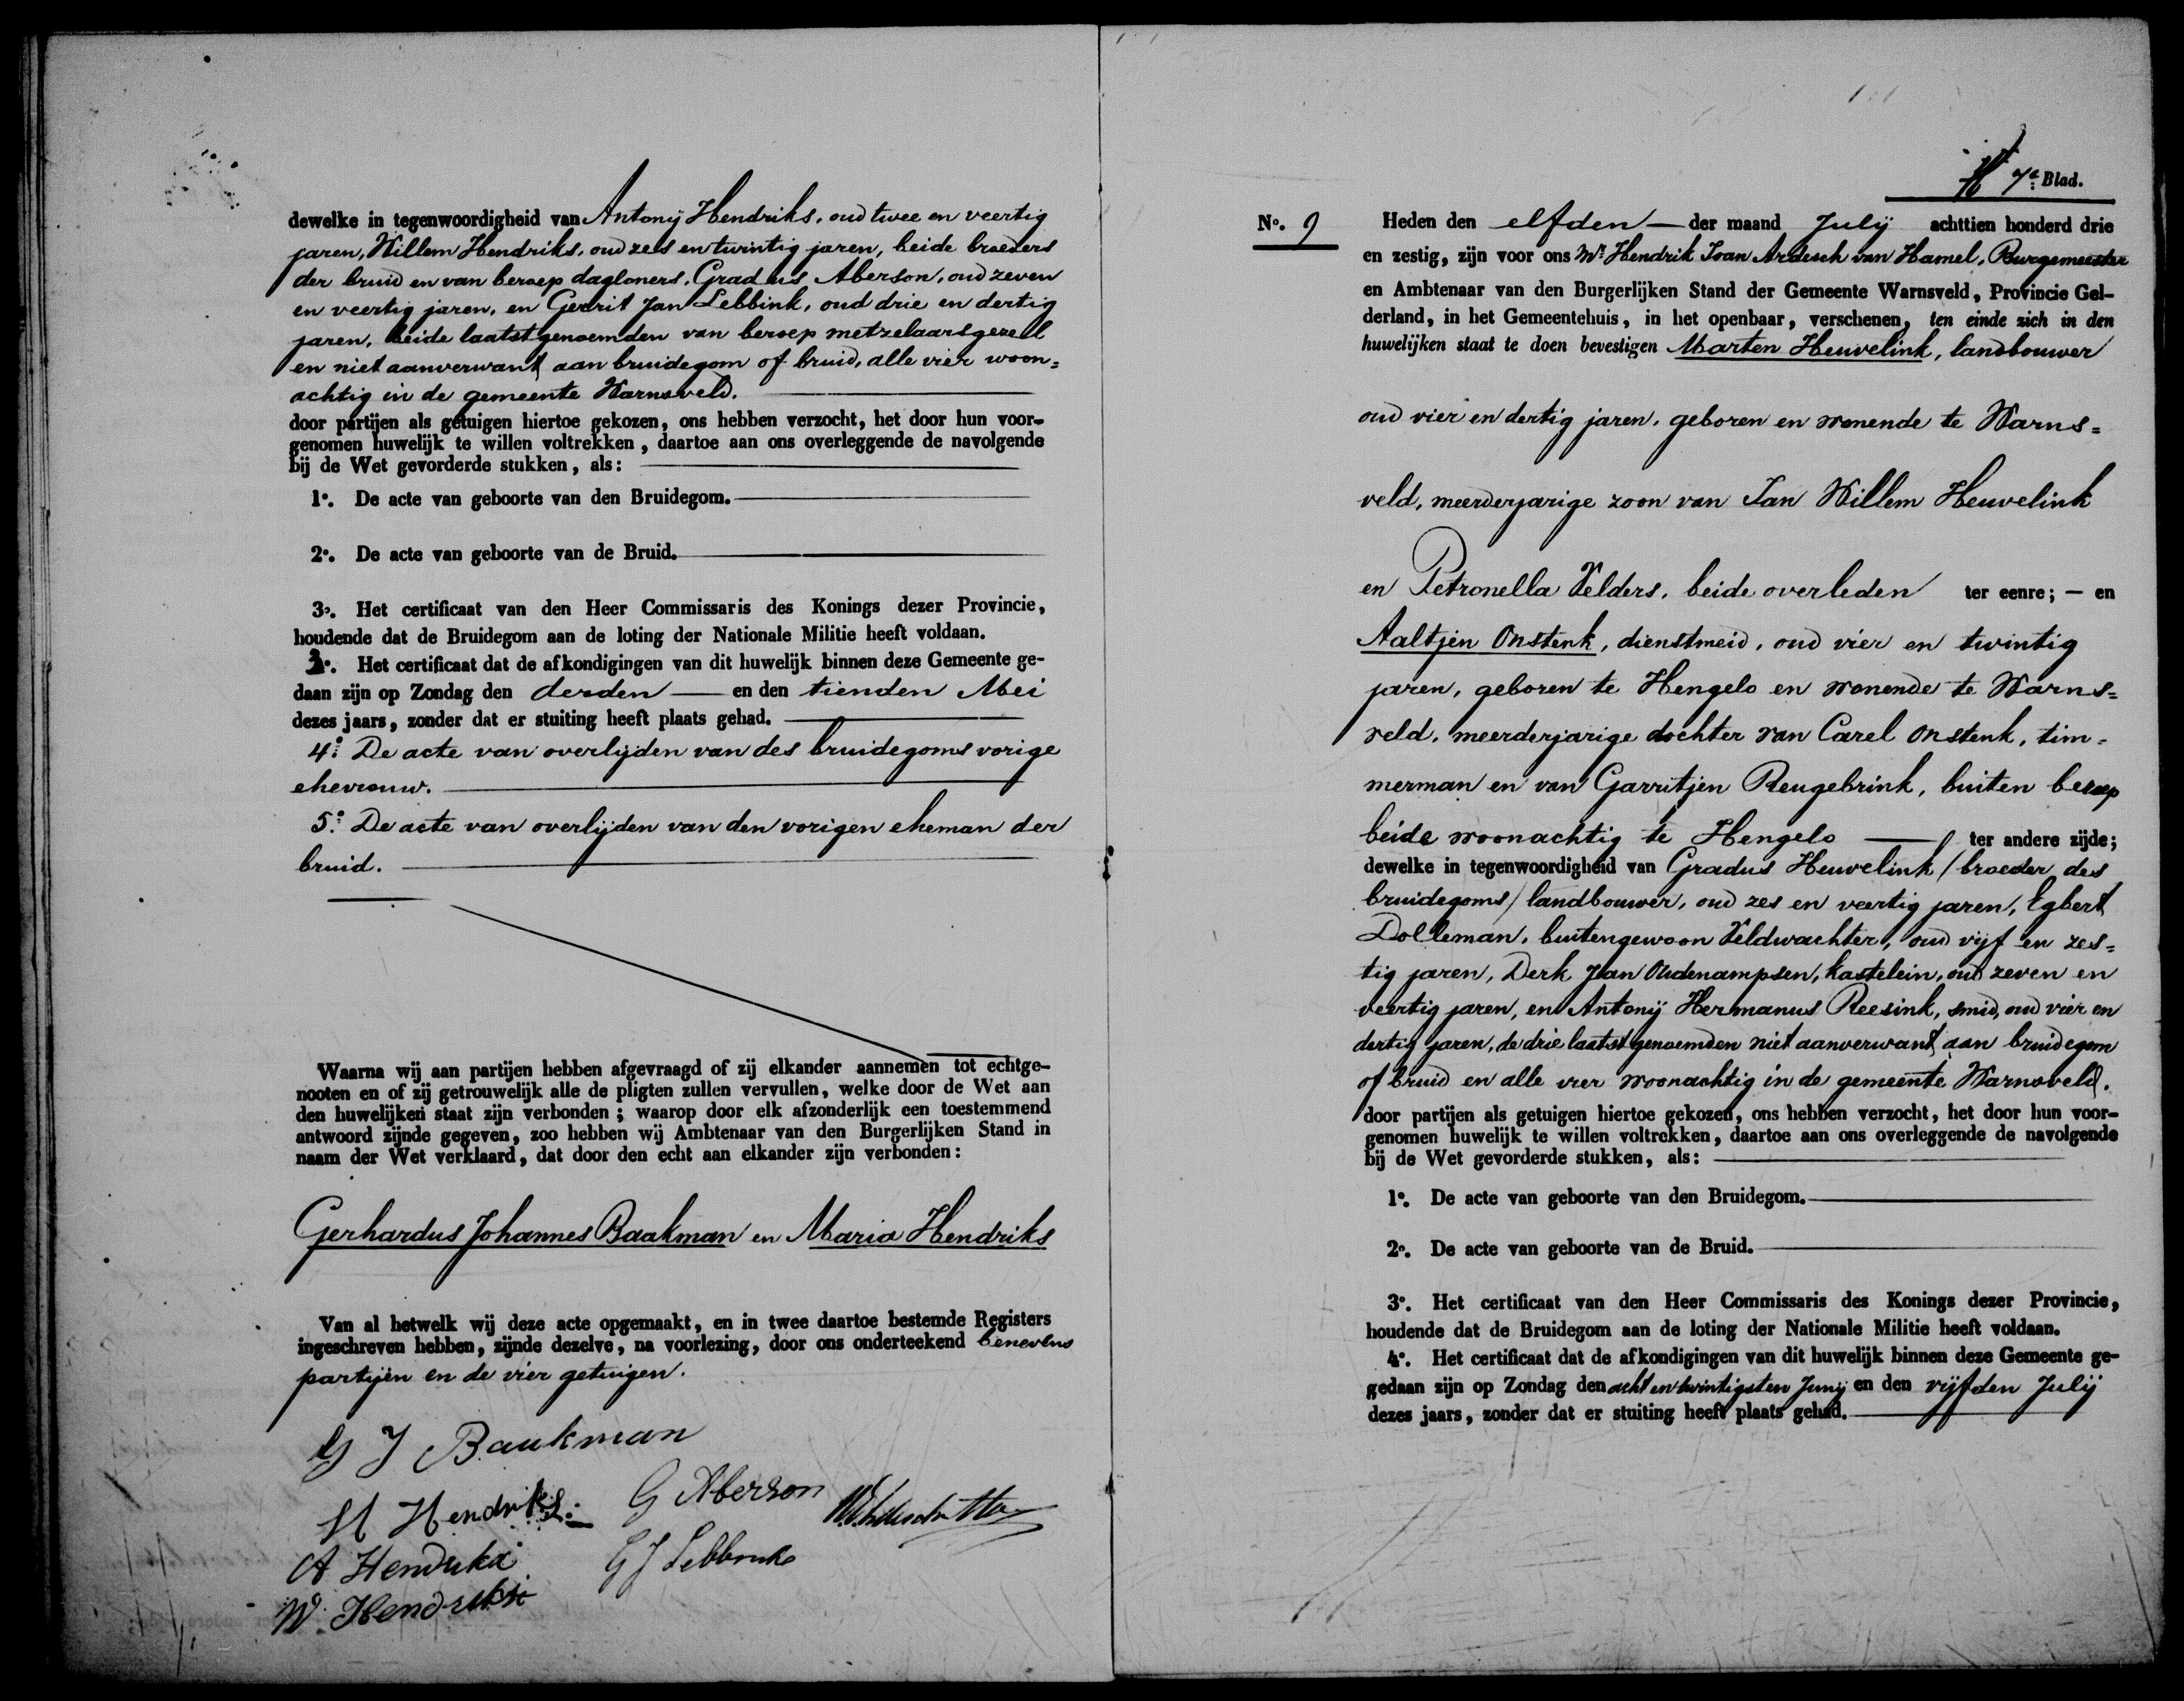 dewelke in tegenwoordigheid van Antonij Hendriks, oud twee en veertig
jaren, Willem Hendriks, oud zes en twintig jaren, beide broeders
der bruid en van beroep dagloners, Gradus Aberson, oud zeven
en veertig jaren, en Gerrit Jan Lebbink, oud drie en dertig
jaren, beide laatstgenoemden van beroep metzelaarsgezell
en niet aanverwant aan bruidegom of bruid, alle vier woon=
achtig in de gemeente Warnsveld.
door partijen als getuigen hiertoe gekozen, ons hebben verzocht, het door hun voor-
genomen huwelijk te willen voltrekken, daartoe aan ons overleggende de navolgende
bij de Wet gevorderde stukken, als:
1o. De acte van geboorte van den Bruidegom.
2o. De acte van geboorte van de Bruid.
3o. Het certificaat van den Heer Commissaris des Konings dezer Provincie,
houdende dat de Bruidegom aan de loting der Nationale Militie heeft voldaan.
3o. Het certificaat dat de afkondigingen van dit huwelijk binnen deze Gemeente ge-
daan zijn op Zondag den derden en den tienden Mei
dezes jaars, zonder dat er stuiting heeft plaats gehad.
4o. De acte van overlijden van des bruidegoms vorige
ehevrouw.
5o. De acte van overlijden van den vorigen eheman der
bruid.
Waarna wij aan partijen hebben afgevraagd of zij elkander aannemen tot echtge-
nooten en of zij getrouwelijk alle de pligten zullen vervullen, welke door de Wet aan
den huwelijken staat zijn verbonden; waarop door elk afzonderlijk een toestemmend
antwoord zijnde gegeven, zoo hebben wij Ambtenaar van den Burgerlijken Stand in
naam der Wet verklaard, dat door den echt aan elkander zijn verbonden:
Gerhardus Johannes Baakman en Maria Hendriks
Van al hetwelk wij deze acte opgemaakt, en in twee daartoe bestemde Registers
ingeschreven hebben, zijnde dezelve, na voorlezing, door ons onderteekend benevens
partijen en de vier getuigen.
G J Baukman
M Hendriks. G Aberson
A Hendriks G J Lebbink
W Hendriks
7e Blad.
No. 9 Heden den elfden der maand Julij achttien honderd drie
en zestig, zijn voor ons Mr Hendrik Ioan Ardesch van Hamel, Burgemeester
en Ambtenaar van den Burgerlijken Stand der Gemeente Warnsveld, Provincie Gel-
derland, in het Gemeentehuis, in het openbaar, verschenen, ten einde zich in den
huwelijken staat te doen bevestigen Marten Heuvelink, landbouwer
oud vier en dertig jaren, geboren en wonende te Warns=
veld, meerderjarige zoon van Jan Willem Heuvelink
en Petronella Velders, beide overleden ter eenre; — en
Aaltjen Onstenk, dienstmeid, oud vier en twintig
jaren, geboren te Hengelo en wonende te Warns=
veld, meerderjarige dochter van Carel Onstenk, tim=
merman en van Garritjen Reugebrink, buiten beroep
beide woonachtig te Hengelo ter andere zijde;
dewelke in tegenwoordigheid van Gradus Heuvelink /broeder des
bruidegoms/ landbouwer, oud zes en veertig jaren, Egbert
Dolleman, buitengewoon Veldwachter, oud vijf en zes=
tig jaren, Derk Jan Oudenampsen, kastelein, oud zeven en
veertig jaren, en Antonij Hermanus Reesink, smid, oud vier en
dertig jaren, de drie laatstgenoemden niet aanverwant aan bruidegom
of bruid en alle vier woonachtig in de gemeente Warnsveld.
door partijen als getuigen hiertoe gekozen, ons hebben verzocht, het door hun voor-
genomen huwelijk te willen voltrekken, daartoe aan ons overleggende de navolgende
bij de Wet gevorderde stukken, als:
1o. De acte van geboorte van den Bruidegom.
2o. De acte van geboorte van de Bruid.
3o. Het certificaat van den Heer Commissaris des Konings dezer Provincie,
houdende dat de Bruidegom aan de loting der Nationale Militie heeft voldaan.
4o. Het certificaat dat de afkondigingen van dit huwelijk binnen deze Gemeente ge-
gedaan zijn op Zondag den acht en twintigsten Junij en den vijfden Julij
dezes jaars, zonder dat er stuiting heeft plaats gehad.